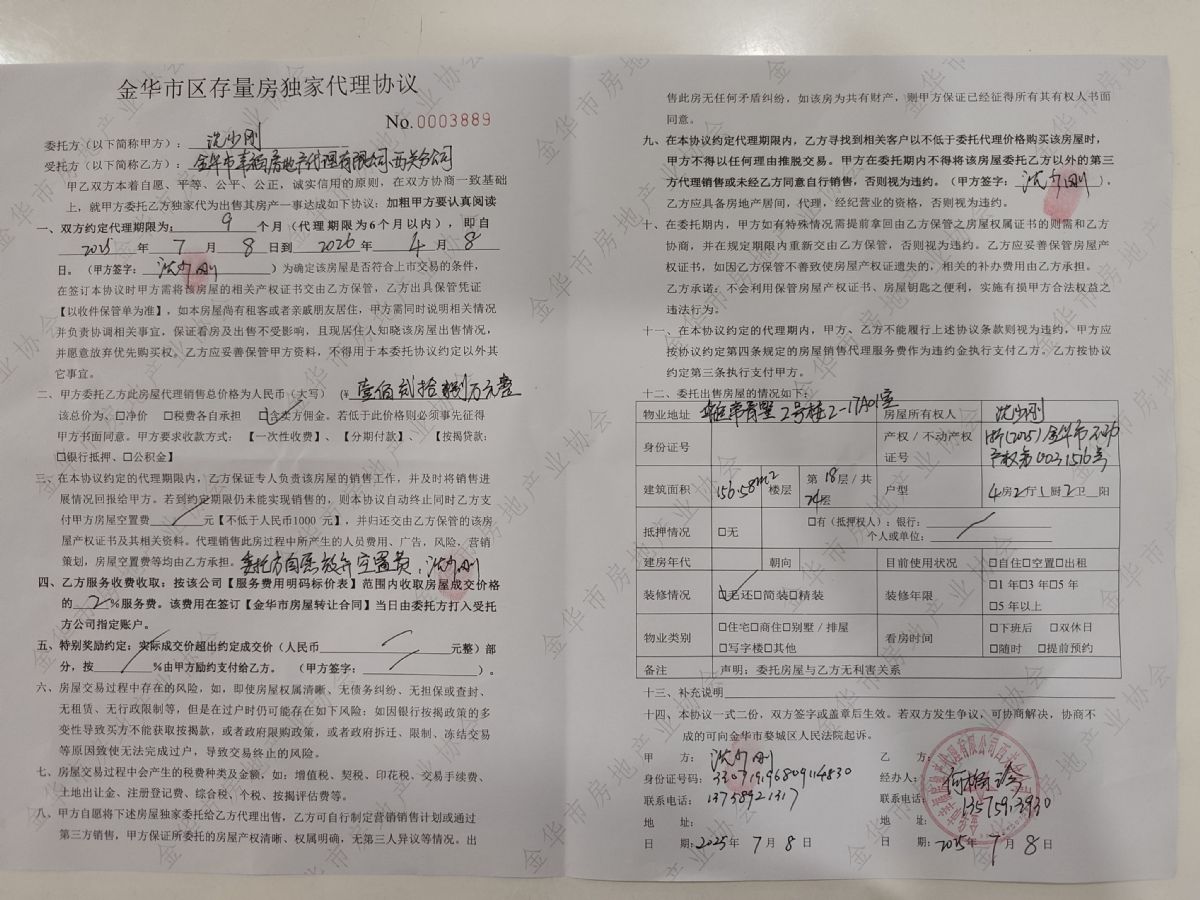 金华市区存量房独家代理协议
No.0003889
委托方（以下简称甲方）：沈少刚
受托方（以下简称乙方）：金华市 房地产代理有限公司 西关分公司
甲乙双方本着自愿、平等、公平、公正，诚实信用的原则，在双方协商一致基础
上，就甲方委托乙方独家代为出售其房产一事达成如下协议：加粗甲方要认真阅读
一、双方约定代理期限为： 9 个月（代理期限为6个月以内），即自
2025 年 7 月 8 日到 2026 年 4 月 8
日。（甲方签字：沈少刚）为确定该房屋是否符合上市交易的条件，
在签订本协议时甲方需将该房屋的相关产权证书交由乙方保管，乙方出具保管凭证
【以收件保管单为准】，如本房屋尚有租客或者亲戚朋友居住，甲方需同时说明相关情况
并负责协调相关事宜，保证看房及出售不受影响，且现居住人知晓该房屋出售情况，
并愿意放弃优先购买权。乙方应妥善保管甲方资料，不得用于本委托协议约定以外其
它事宜。
二、甲方委托乙方此房屋代理销售总价格为人民币（大写）（¥ 壹佰贰拾 万元整
该总价为、☐净价 ☐税费各自承担 ☑含卖方佣金。若低于此价格则必须事先征得
甲方书面同意。甲方要求收款方式：【一次性收费】、【分期付款】、【按揭贷款：
☐银行抵押、☐公积金】
三、在本协议约定的代理期限内，乙方保证专人负责该房屋的销售工作，并及时将销售进
展情况回报给甲方。若到约定期限仍未能实现销售的，则本协议自动终止同时乙方支
付甲方房屋空置费 / 元【不低于人民币1000 元】，并归还交由乙方保管的该房
屋产权证书及其相关资料。代理销售此房过程中所产生的人员费用、广告，风险，营销
策划，房屋空置费等均由乙方承担。委托方自愿放弃空置费，沈少刚
四、乙方服务收费收取：按该公司【服务费用明码标价表】范围内收取房屋成交价格
的 2 %服务费。该费用在签订【金华市房屋转让合同】当日由委托方打入受托
方公司指定账户。
五、特别奖励约定：实际成交价超出约定成交价（人民币 / 元整）部
分，按 / %由甲方励约支付给乙方。（甲方签字： / ）。
六、房屋交易过程中存在的风险，如，即使房屋权属清晰、无债务纠纷、无担保或查封、
无租赁、无行政限制等，但是在过户时仍可能存在如下风险：如因银行按揭政策的多
变性导致买方不能获取按揭款，或者政府限购政策，或者政府拆迁、限制、冻结交易
等原因致使无法完成过户，导致交易终止的风险。
七、房屋交易过程中会产生的税费种类及金额，如：增值税、契税、印花税、交易手续费、
土地出让金、注册登记费、综合税、个税、按揭评估费等。
八、甲方自愿将下述房屋独家委托给乙方代理出售，乙方可自行制定营销销售计划或通过
第三方销售，甲方保证所委托的房屋产权清晰、权属明确，无第三人异议等情况。出
售此房无任何矛盾纠纷，如该房为共有财产，则甲方保证已经征得所有其有权人书面
同意。
九、在本协议约定代理期限内，乙方寻找到相关客户以不低于委托代理价格购买该房屋时，
甲方不得以任何理由推脱交易。甲方在委托期内不得将该房屋委托乙方以外的第三
方代理销售或未经乙方同意自行销售，否则视为违约。（甲方签字：沈少刚）。
乙方应具备房地产居间，代理，经纪营业的资格，否则视为违约。
十、在委托期内，甲方如有特殊情况需提前拿回由乙方保管之房屋权属证书的则需和乙方
协商，并在规定期限内重新交由乙方保管，否则视为违约。乙方应妥善保管房屋产
权证书，如因乙方保管不善致使房屋产权证遗失的，相关的补办费用由乙方承担。
乙方承诺：不会利用保管房屋产权证书、房屋钥匙之便利，实施有损甲方合法权益之
违法行为。
十一、在本协议约定的代理期内，甲方、乙方不能履行上述协议条款则视为违约，甲方应
按协议约定第四条规定的房屋销售代理服务费作为违约金执行支付乙方。乙方按协议
约定第三条执行支付甲方。
十二、委托出售房屋的情况如下：
物业地址 2号楼2-17A01室 房屋所有权人 沈少刚
身份证号 产权/不动产权证号 浙(2025)金华市不动产权第0031516号
建筑面积 156.58m2 楼层 第18层/共24层 户型 4房2厅1厨2卫 阳
抵押情况 ☐无 ☐有（抵押权人）：银行：
个人或单位： /
建房年代 朝向 目前使用状况 ☐自住☐空置☐出租
装修情况 ☑毛还☐简装☐精装 装修年限 ☐1年☐3年☐5年
☐5年以上
物业类别 ☐住宅☐商住☐别墅/排屋
☐写字楼☐其他 看房时间 ☐下班后 ☐双休日
☐随时 ☐提前预约
备注 声明：委托房屋与乙方无利害关系
十三、补充说明
十四、本协议一式二份，双方签字或盖章后生效。若双方发生争议，可协商解决，协商不
成的可向金华市婺城区人民法院起诉。
甲 方：沈少刚 乙 方：
身份证号码：330719196809114830 经办人：
联系电话：13758921317 联系电话：
地 址： 地 址：
日 期：2025年 7 月 8 日 日 期：2025年 7 月 8 日
金华市房地产业协会